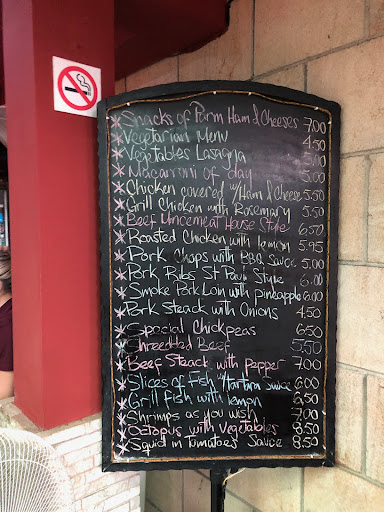 * Snacks of Parm Ham & Cheeses 7.00
* Vegetarian Menu 4.50
* Vegetables Lasagna 5.00
* Macarroni of day 5.00
* Chicken covered w/Ham & Cheese 5.50
* Grill Chicken with Rosemary 5.50
* Beef Mincemeat House Style 6.50
* Roasted Chicken with lemon 5.95
* Pork Chops with BBQ Sauce 5.00
* Pork Ribs St Paul Style 6.00
* Smoke Pork Loin with pineapple 6.00
* Pork Steack with Onions 4.50
* Special Chickpeas 6.50
* Shreedded Beef 5.50
* Beef Steack with pepper 7.00
* Slices of Fish w/tartara Sauce 6.00
* Grill fish with lemon 6.50
* Shrimps as you wish 7.00
* Octopus with Vegetables 8.50
* Squid in Tomatoes Sauce 8.50